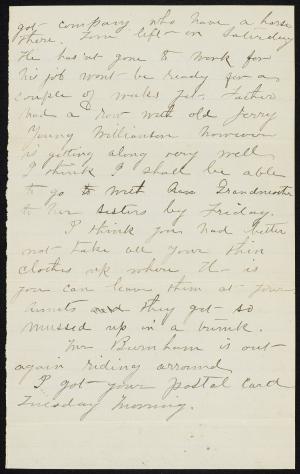 got company who have a horse
there. left on Saturday
He has'nt gone to work for
his job won't be ready for a
couple of weeks yet. Father
had a row with old Jerry
Young Williamson however
is getting along very well
I think I shall be able
to go to with Grandmother
to her sisters by Friday.
I think you had better
not take all your thin
clothes up where it is
you can leave them at your
Aunts and they get so
mussed up in a trunk.
Mr Burnham is out
again riding arround
I got your postal card
Tuesday Morning.